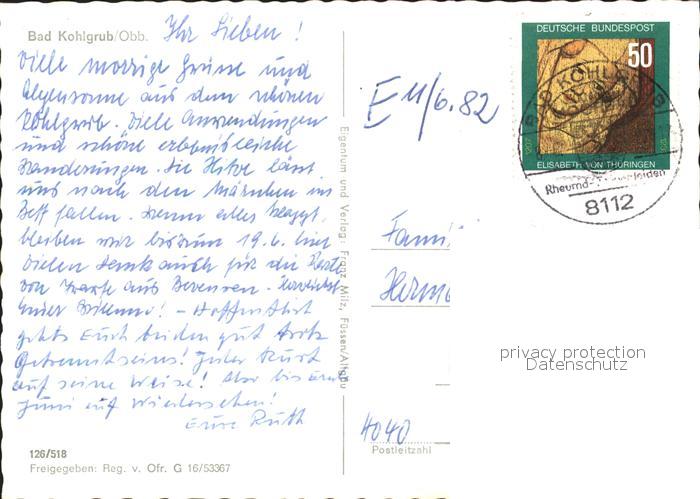 Bad Kohlgrub/Obb.
Ihr Lieben!
Viele moorige Grüsse und
Alpensonne aus dem schönen
Kohlgrub. Viele Anwendungen
und schöne erlebnisreiche
Wanderungen. Die Hitze lässt
uns nach den Märschen ins
Bett fallen. Wenn alles klappt,
bleiben wir bis zum 19.6. hier
Vielen Dank auch für die Karte
von aus Bevensen.
! – Hoffentlich
gehts Euch beiden gut trotz
Getrenntseins! Jeder kurt
auf seine Weise! Also bis Ende
Juni auf Wiedersehen!
Eure Ruth
126/518
Freigegeben: Reg. v. Ofr. G 16/53367
Eigentum und Verlag: Franz Milz, Füssen/Allgäu
E 11/6.82
DEUTSCHE BUNDESPOST
50
1207
ELISABETH VON THÜRINGEN
BAD KOHLGRUB
Rheuma-Frauenleiden
8112
Fami
Herm
privacy protection
Datenschutz
4040
Postleitzahl